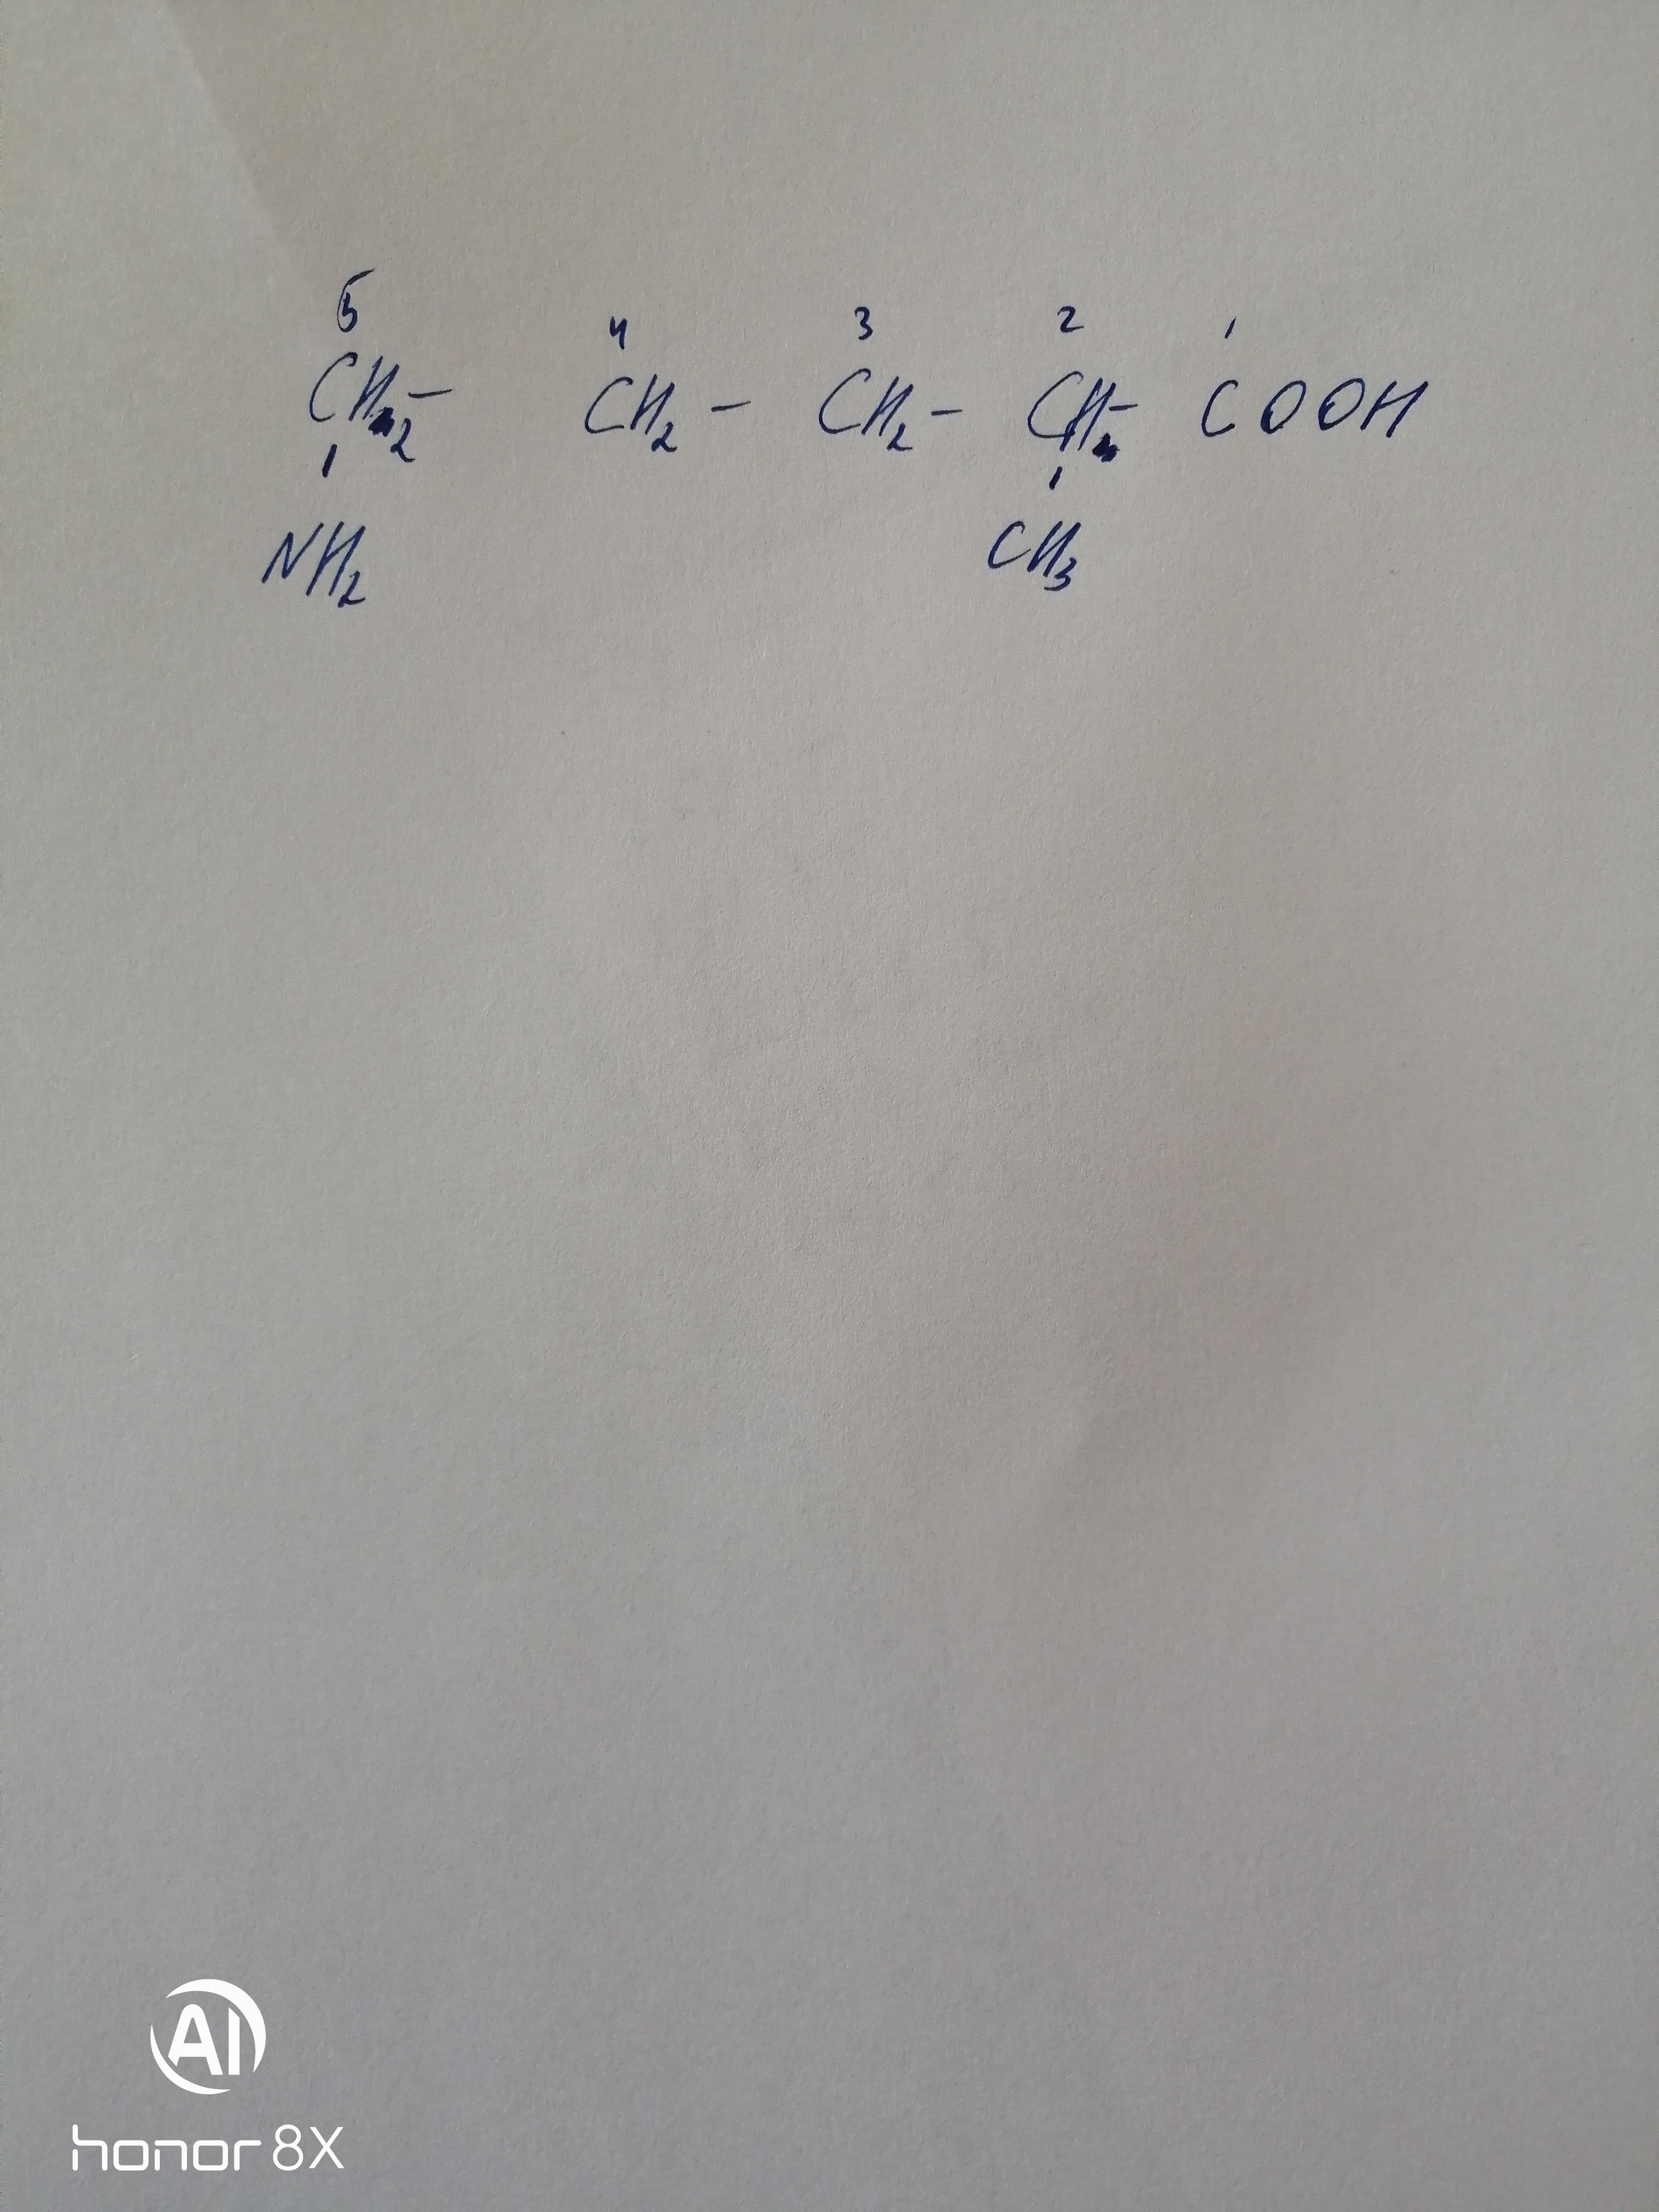 5 4 3 2 1
CH2- CH2 - CH2 - CH- COOH
NH2 CH3
AI
honor 8X